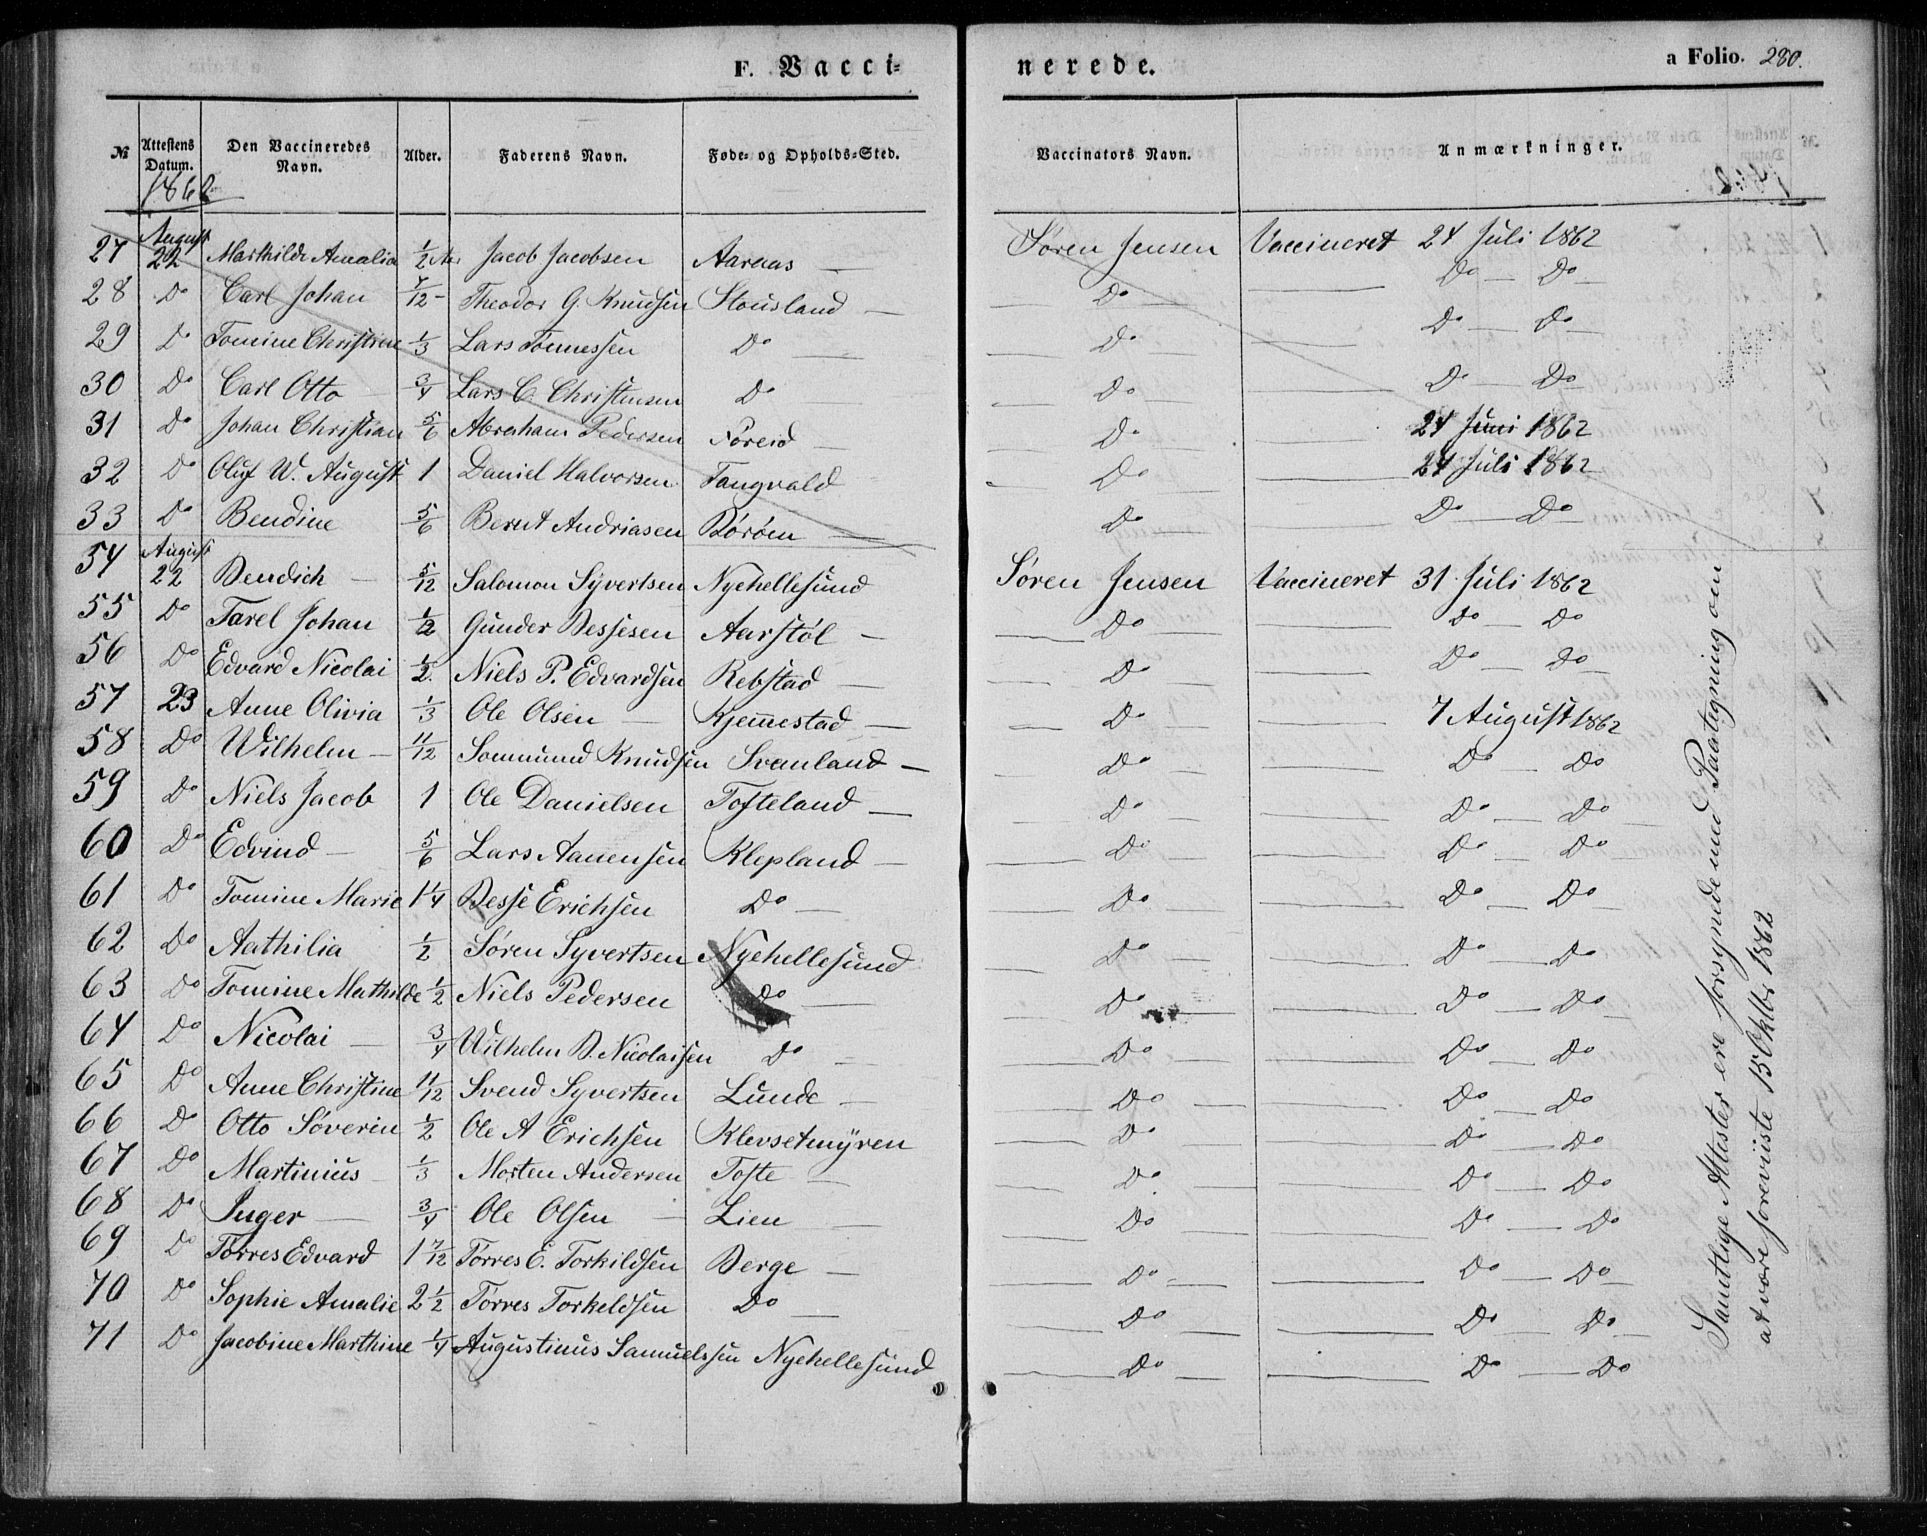 F. Vacci-
nerede.
a Folio. 280.
№ Attestens Datum. Den Vaccineredes Navn. Alder. Faderens Navn. Føde- og Opholds-Sted. Vaccinators Navn. Anmærkninger.
1862
27 August 22 Mathilde Amalia 1/2 Aar Jacob Jacobsen Aaraas — Søren Jensen Vaccineret 24 Juli 1862
28 Do Carl Johan 7/12 Theodor G. Knudsen Stousland — Do — Do — Do
29 Do Tomine Christine 1/3 Lars Tønnessen Do — Do — Do — Do
30 Do Carl Otto 3/4 Lars C. Christensen Do — Do — Do — Do
31 Do Johan Christian 5/6 Abraham Pedersen Noreid — Do — 24 Juni 1862
32 Do Oluf W. August 1 Daniel Halvorsen Tangvald Do — 24 Juli 1862
33 Do Bendine 5/6 Bernt Andriasen Børøen — Do — Do — Do
54 August 22 Bendich — 5/12 Salomon Syvertsen Nyehellesund Søren Jensen Vaccineret 31 Juli 1862
55 Do Tarel Johan 1/2 Gunder Besjesen Aarstøl — Do — Do — Do
56 Do Edvard Nicolai 1/2 Niels P. Edvardsen Rebstad — Do — Do — Do
57 23 Anne Olivia 1/3 Ole Olsen — Kjemestad — Do — 7 August 1862
58 Do Wilhelm — 11/12 Sommund Knudsen Svenland — Do — Do — Do
59 Do Niels Jacob 1 Ole Danielsen Tofteland — Do — Do — Do
60 Do Edvind — 5/6 Lars Aanensen Klepland — Do — Do — Do
61 Do Tomine Marie 1 1/4 Besse Erichsen Do — Do — Do — Do
62 Do Aathilia 1/2 Søren Syvertsen Nyehellesund Do — Do — Do
63 Do Tomine Mathilde 1/2 Niels Pedersen Do — Do — Do — Do
64 Do Nicolai — 3/4 Wilhelm B. Nicolaisen Do — Do — Do — Do
65 Do Anne Christine 11/12 Svend Syvertsen Lunde — Do — Do — Do
66 Do Otto Søverin 1/2 Ole A Erichsen Klevsetmyren Do — Do — Do
67 Do Martinius 1/3 Morten Andersen Tofte — Do — Do — Do
68 Do Inger — 3/4 Ole Olsen — Lien — Do — Do — Do
69 Do Tørres Edvard 1 7/12 Tørres E. Torkildsen Berge — Do — Do — Do
70 Do Sophie Amalie 2 1/2 Tørres Torkeldsen Do — Do — Do — Do
71 Do Jacobine Marthine 1/4 Augustinus Samuelssen Nyehellesund Do — Do — Do
Samtlige Attester ere forsynede med Paategning om
at være foreviiste 15 Oktbr 1862